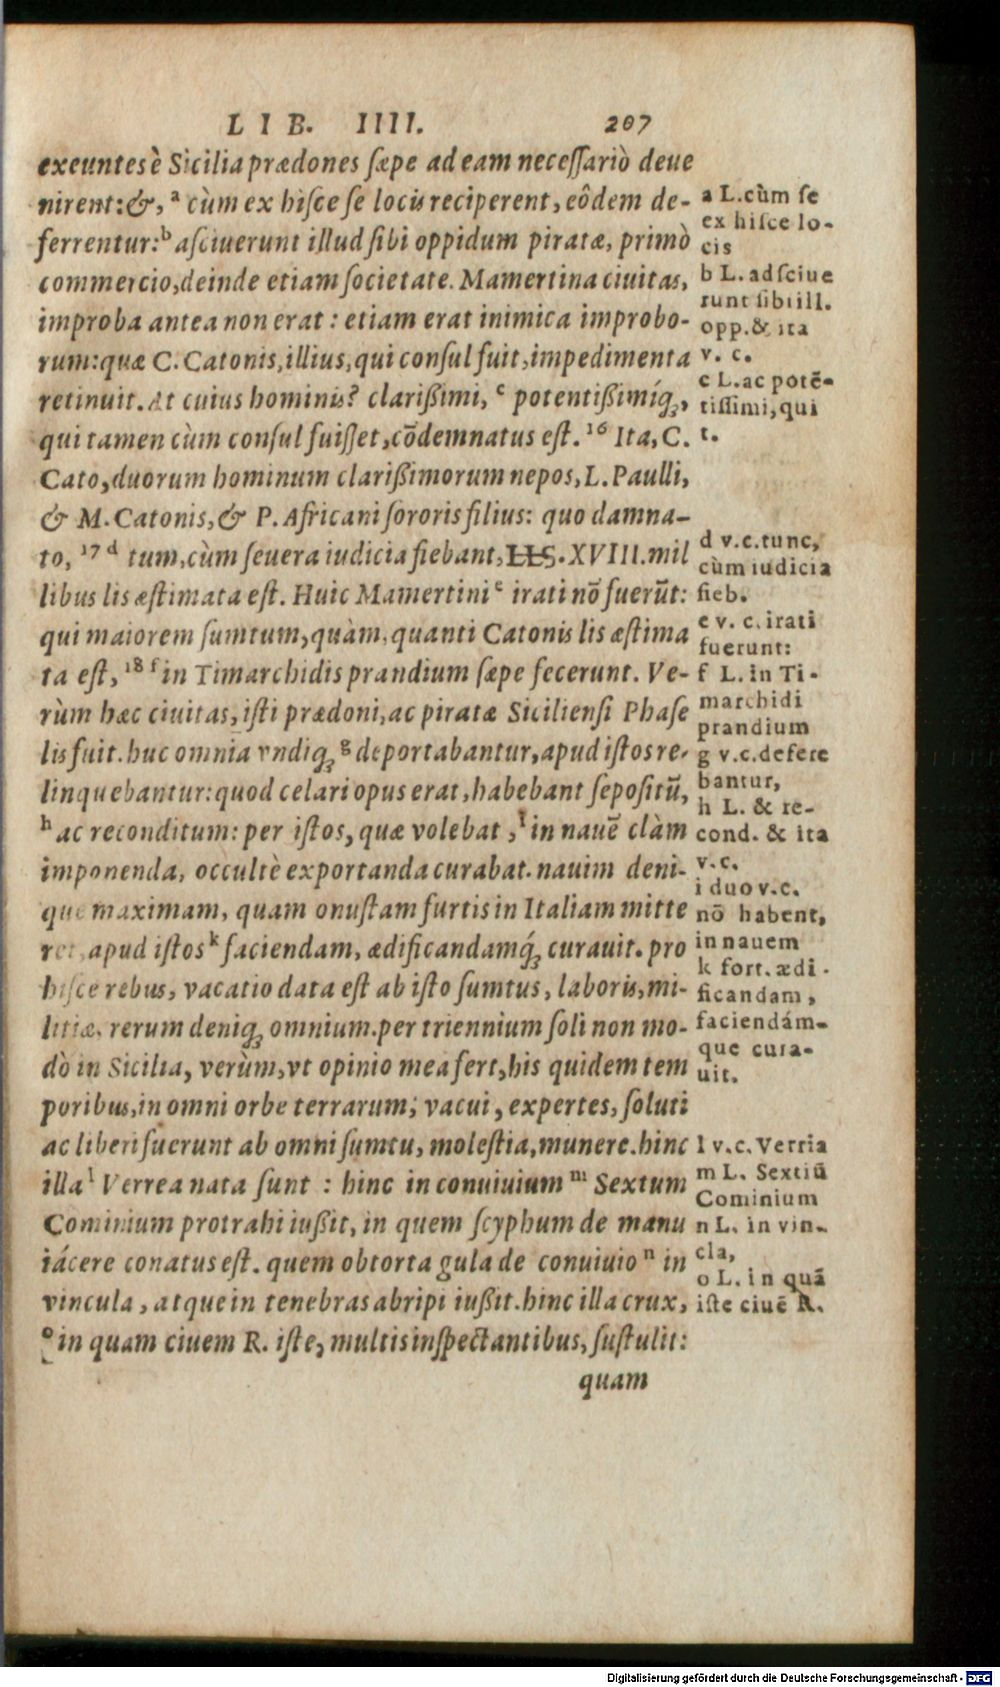 LIB. IIII. 207
exeuntes è Sicilia prædones sæpe ad eam necessariò deue
nirent: &, ᵃ cùm ex hisce se locis reciperent, eôdem de-
ferrentur: ᵇ asciuerunt illud sibi oppidum piratæ, primò
commercio, deinde etiam societate. Mamertina ciuitas,
improba antea non erat : etiam erat inimica improbo-
rum: quæ C. Catonis, illius, qui consul fuit, impedimenta
retinuit. At cuius hominis? clarißimi, ᶜ potentißimíq́ꝫ,
qui tamen cùm consul fuisset, cõdemnatus est. ¹⁶ Ita, C.
Cato, duorum hominum clarißimorum nepos, L. Paulli,
& M. Catonis, & P. Africani sororis filius: quo damna-
to, ¹⁷ ᵈ tum, cùm seuera iudicia fiebant, LLS. XVIII. mil
libus lis æstimata est. Huic Mamertini ᵉ irati nõ fuerũt:
qui maiorem sumtum, quàm, quanti Catonis lis æstima
ta est, ¹⁸ ᶠ in Timarchidis prandium sæpe fecerunt. Ve-
rùm hæc ciuitas, isti prædoni, ac piratæ Siciliensi Phase
lis fuit. huc omnia vndiqꝫ ᵍ deportabantur, apud istos re-
linquebantur: quod celari opus erat, habebant sepositũ,
ʰ ac reconditum: per istos, quæ volebat, ⁱ in nauẽ clàm
imponenda, occultè exportanda curabat. nauim deni-
que maximam, quam onustam furtis in Italiam mitte
ret, apud istos ᵏ faciendam, ædificandamq́ꝫ curauit. pro
hisce rebus, vacatio data est ab isto sumtus, laboris, mi-
litiæ, rerum deniqꝫ omnium. per triennium soli non mo-
dò in Sicilia, verùm, vt opinio mea fert, his quidem tem
poribus, in omni orbe terrarum; vacui, expertes, soluti
ac liberi fuerunt ab omni sumtu, molestia, munere. hinc
illa ˡ Verrea nata sunt : hinc in conuiuium ᵐ Sextum
Cominium protrahi iußit, in quem scyphum de manu
iácere conatus est. quem obtorta gula de conuiuio ⁿ in
vincula, atque in tenebras abripi iußit. hinc illa crux,
ᵒ in quam ciuem R. iste, multis inspectantibus, sustulit:
quam
a L. cùm se
ex hisce lo-
cis
b L. adsciue
runt sibi ill.
opp. & ita
v. c.
c L. ac potẽ-
tissimi, qui
t.
d v. c. tunc,
cùm iudicia
fieb.
e v. c. irati
fuerunt:
f L. in Ti-
marchidi
prandium
g v. c. defere
bantur,
h L. & re-
cond. & ita
v. c.
i duo v. c.
nõ habent,
in nauem
k fort. ædi-
ficandam,
faciendám-
que cura-
uit.
l v. c. Verria
m L. Sextiũ
Cominium
n L. in vin-
cla,
o L. in quã
iste ciuẽ R.
Digitalisierung gefördert durch die Deutsche Forschungsgemeinschaft - DFG